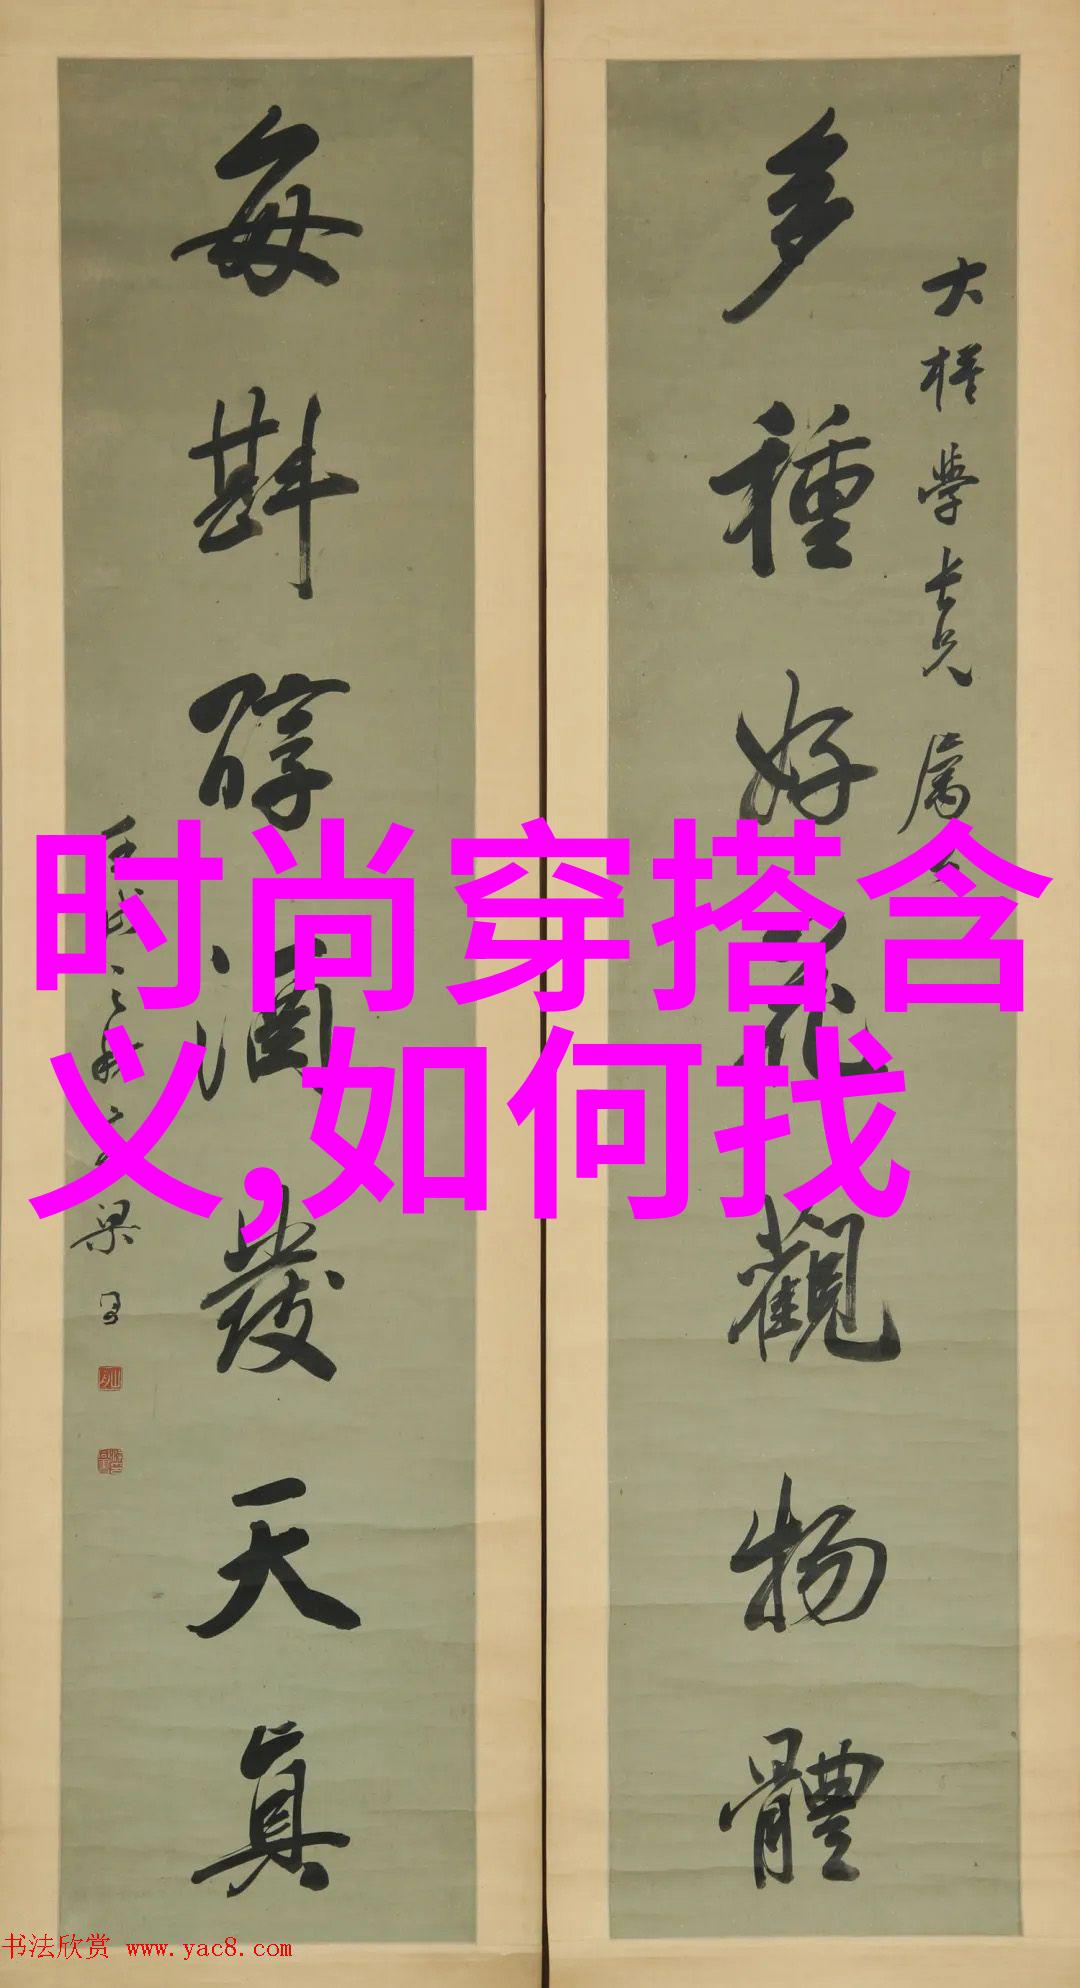 多種好花觀物體
大槎學長兄屬
每斟醇酒發天真
梁
时尚穿搭含
义,如何找
书法欣赏 www.yac8.com